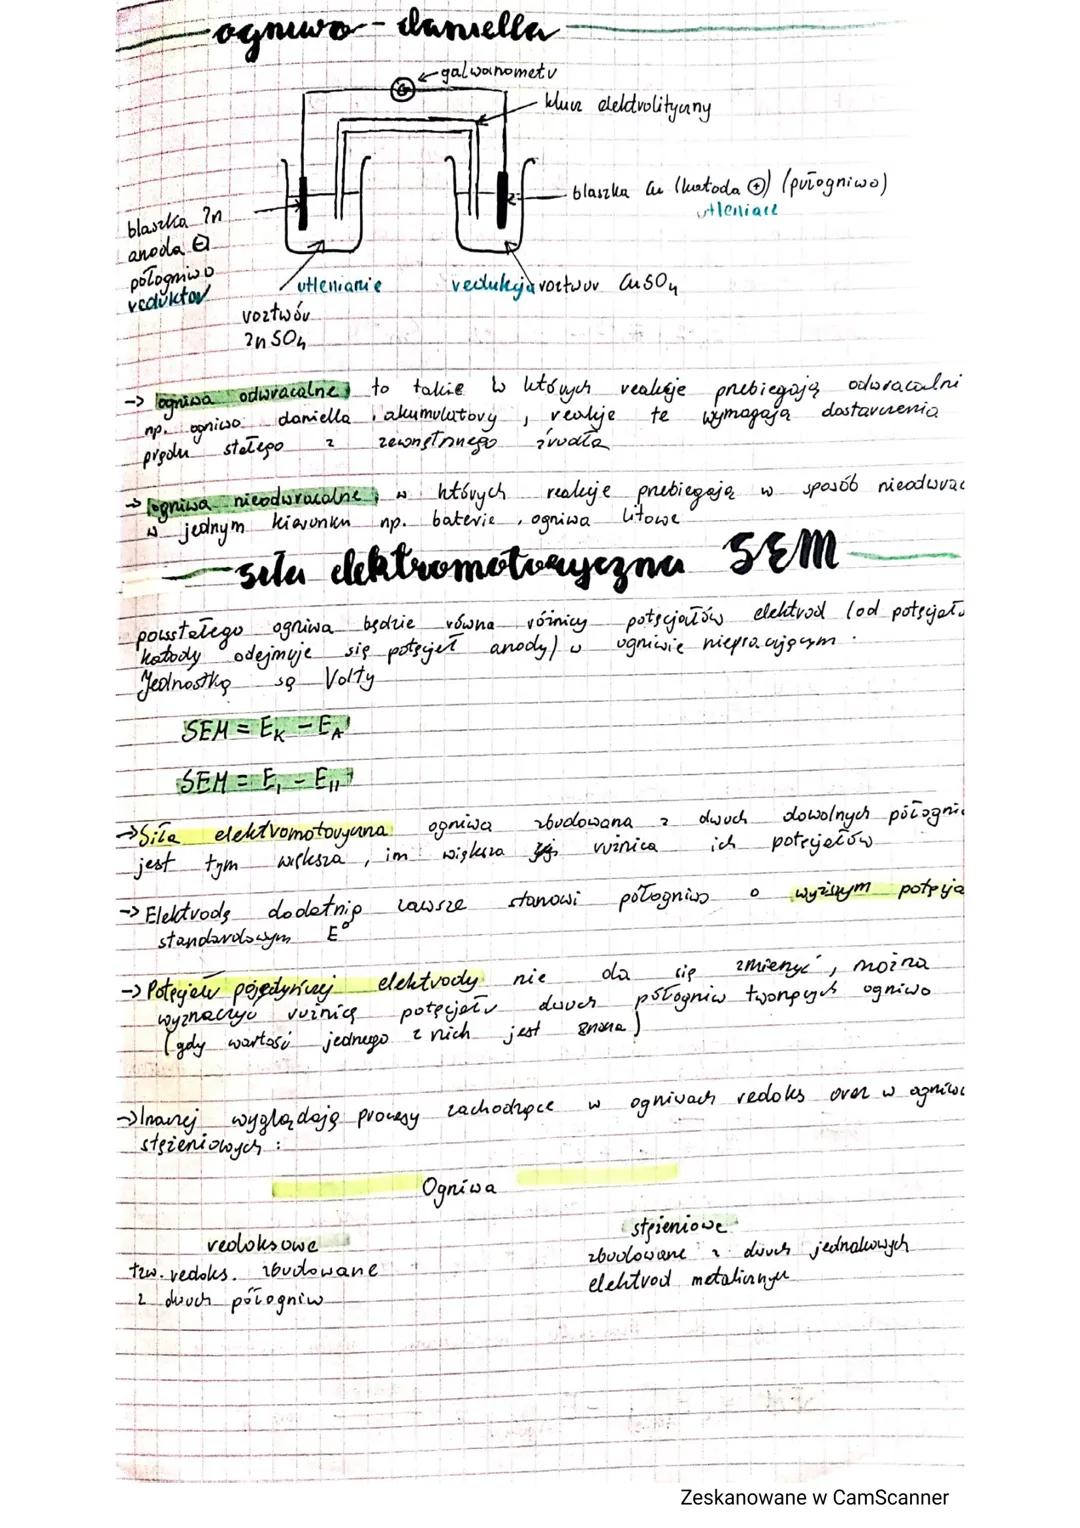 ogniwo - daniella
galwanometr
klucz elektrolityczny
blaszka Cu (katoda ⊕) (półogniwo)
utleniacz
blaszka Zn
anoda ⊖
półogniwo
reduktor
utlenianie
redukcja roztwór CuSO4
roztwór
ZnSO4
-> ogniwa odwracalne, to takie w których reakcje przebiegają odwracalni
np. ogniwo daniella, akumulatory, reakcje te wymagają dostarczenia
prądu stałego z zewnętrznego źródła
-> ogniwa nieodwracalne, w których reakcje przebiegają w sposób nieodwrac
w jednym kierunku np. baterie, ogniwa litowe
siła elektromotoryczna SEM
powstałego ogniwa będzie równa różnicy potęcjałów elektrod (od potęcjału
katody odejmuje się potęcjał anody) w ogniwie niepracującym.
Jednostką są Volty
SEM = EK - EA
SEM = EI - EII
-> Siła elektromotoryczna ogniwa zbudowana z dwóch dowolnych półogniw
jest tym większa, im większa jej różnica ich potęcjałów
-> Elektrodę dodatnią zawsze stanowi półogniwo o wyższym potęcja
standardowym E°
-> Potęcjału pojedyńczej elektrody nie da się zmienyć, można
wyznaczyć różnicę potęcjału dwuch półogniw tworzących ogniwo
(gdy wartość jednego z nich jest znana)
-> Inaczej wyglądają procesy zachodzące w ogniwach redoks oraz w ogniwa
stężeniowych:
Ogniwa
redoksowe
tzw. redoks. zbudowane
z dwóch półogniw
stężeniowe
zbudowane z dwóch jednakowych
elektrod metalicznych
Zeskanowane w CamScanner